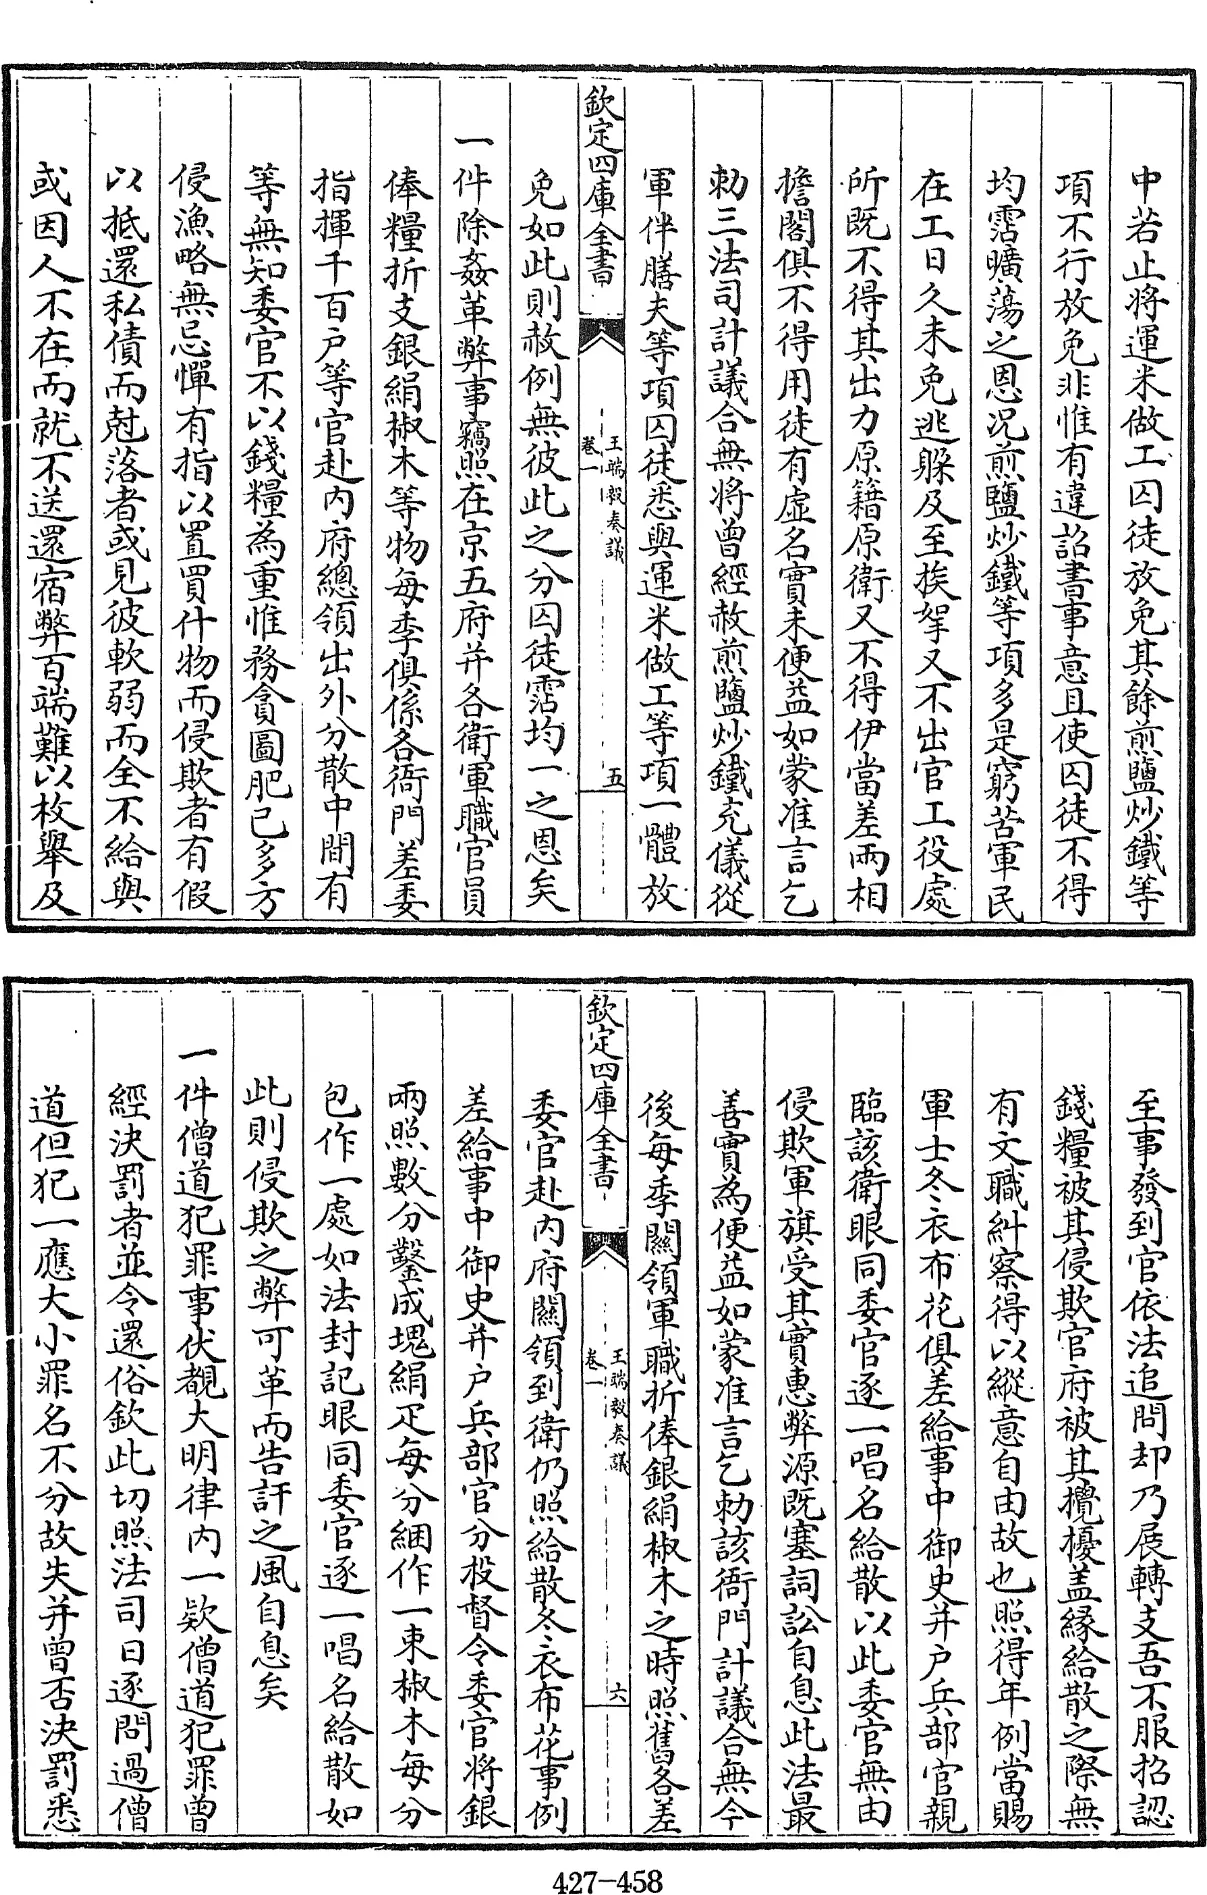 中若止將運米做工囚徒放免其餘煎鹽炒鐵等
項不行放免非惟有違詔書事意且使囚徒不得
均霑曠蕩之恩况煎鹽炒鐵等項多是窮苦軍民
在工日久未免逃躱及至挨拏又不出官工役處
所既不得其出力原籍原衛又不得伊當差兩相
擔閣俱不得用徒有虛名實未便益如蒙准言乞
勅三法司計議合無將曾經赦煎鹽炒鐵充儀從
軍伴膳夫等項囚徒悉與運米做工等項一體放
欽定四庫全書
王端毅奏議
卷一
五
免如此則赦例無彼此之分囚徒霑均一之恩矣
一件除姦革弊事竊照在京五府并各衛軍職官員
俸糧折支銀絹椒木等物每季俱係各衙門差委
指揮千百户等官赴内府總領出外分散中間有
等無知委官不以錢糧為重惟務貪圖肥己多方
侵漁略無忌憚有指以置買什物而侵欺者有假
以抵還私債而尅落者或見彼軟弱而全不給與
或因人不在而就不送還宿弊百端難以枚舉及
至事發到官依法追問却乃展轉支吾不服招認
錢糧被其侵欺官府被其攪擾盖緣給散之際無
有文職糾察得以縱意自由故也照得年例當賜
軍士冬衣布花俱差給事中御史并户兵部官親
臨該衛眼同委官逐一唱名給散以此委官無由
侵欺軍旗受其實惠弊源既塞詞訟自息此法最
善實為便益如蒙准言乞勅該衙門計議合無今
後每季關領軍職折俸銀絹椒木之時照舊各差
欽定四庫全書
王端毅奏議
卷一
六
委官赴内府關領到衛仍照給散冬衣布花事例
差給事中御史并户兵部官分投督令委官將銀
兩照數分鑿成塊絹疋每分綑作一束椒木每分
包作一處如法封記眼同委官逐一唱名給散如
此則侵欺之弊可革而告訐之風自息矣
一件僧道犯罪事伏覩大明律内一欵僧道犯罪曾
經決罰者並令還俗欽此切照法司日逐問過僧
道但犯一應大小罪名不分故失并曾否決罰悉
427-458